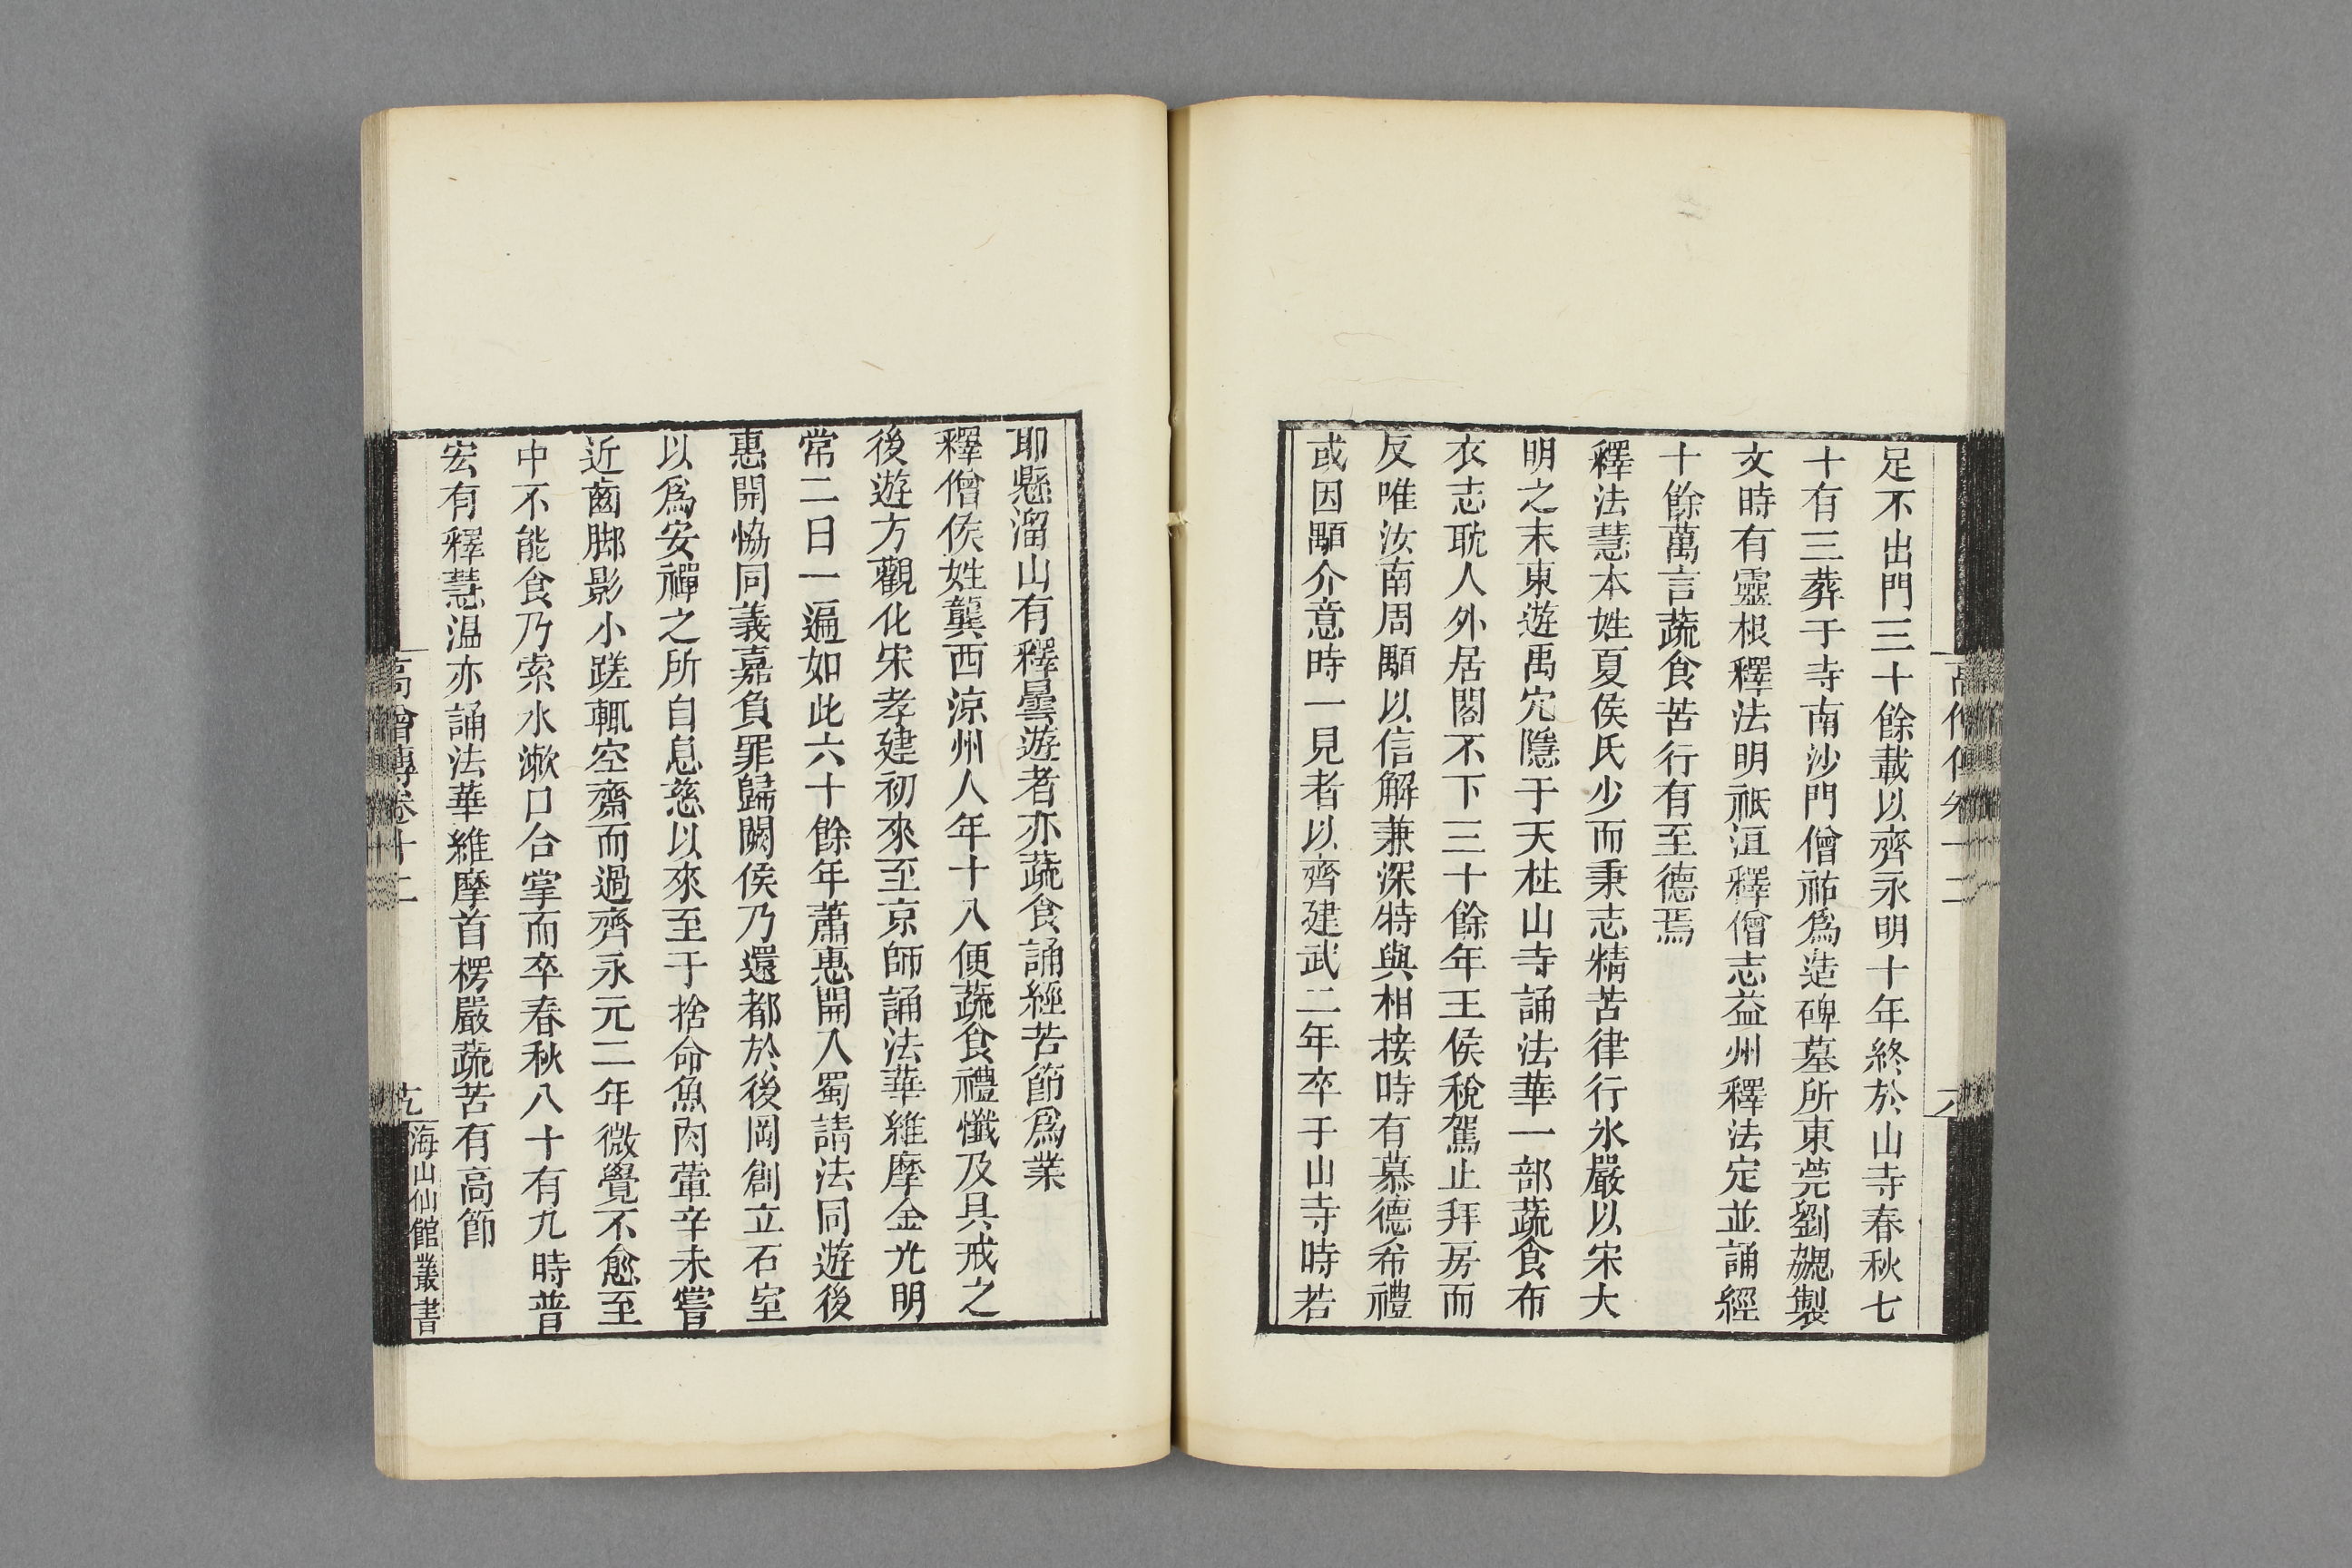 足不出門三十餘載以齊永明十年終於山寺春秋七
十有三葬于寺南沙門僧祐爲造碑墓所東莞劉勰製
文時有靈根釋法明祇洹釋僧志益州釋法定並誦經
十餘萬言蔬食苦行有至德焉
釋法慧本姓夏侯氏少而秉志精苦律行氷嚴以宋大
明之末東遊禹穴隱于天柱山寺誦法華一部蔬食布
衣志耽人外居閣不下三十餘年王侯稅駕止拜房而
反唯汝南周顒以信解兼深特與相接時有慕德希禮
或因顒介意時一見者以齊建武二年卒于山寺時若
耶懸溜山有釋曇遊者亦蔬食誦經苦節爲業
釋僧侯姓龔西涼州人年十八便蔬食禮懺及具戒之
後遊方觀化宋孝建初來至京師誦法華維摩金光明
常二日一遍如此六十餘年蕭惠開入蜀請法同遊後
惠開恊同義嘉負罪歸闕侯乃還都於後岡創立石室
以爲安禪之所自息慈以來至于捨命魚肉葷辛未嘗
近齒脚影小蹉輒空齋而過齊永元二年微覺不愈至
中不能食乃索水漱口合掌而卒春秋八十有九時普
宏有釋慧温亦誦法華維摩首楞嚴蔬苦有高節
高僧傳卷十二
海山仙館叢書